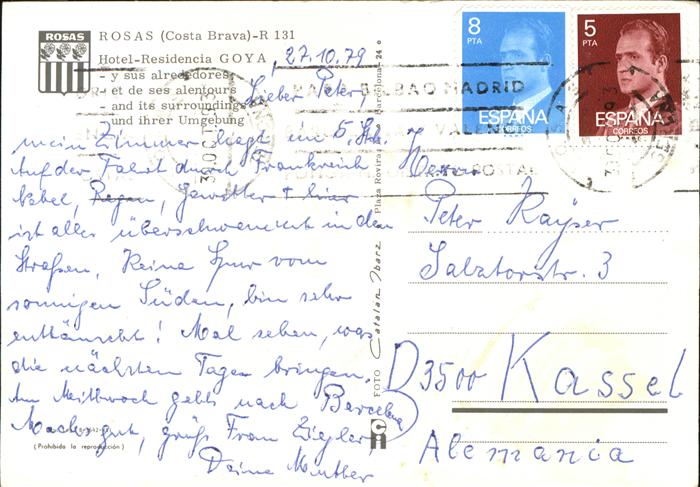 ROSAS
ROSAS (Costa Brava)-R 131
Hotel-Residencia GOYA
- y sus alrededores
- et de ses alentours
- and its surroundings
- und ihrer Umgebung
27.10.79
Lieber Peter,
mein Zimmer liegt im 5. Stk.
Auf der Fahrt durch Frankreich
Nebel, Regen, Gewitter + hier
ist alles überschwemmt in den
Straßen, Keine Spur vom
sonnigen Süden, bin sehr
enttäuscht! Mal sehen, was
die nächsten Tage bringen.
Am Mittwoch gehts nach Barcelona
Machs gut, grüß Frau Ziegler
Deine Mutter
(Prohibida la reproducción)
FOTO Catalan Ibarz
Plaza Rovira
Barcelona-24
8
PTA
ESPAÑA
CORREOS
5
PTA
ESPAÑA
CORREOS
BILBAO MADRID
POSTAL
Herrn
Peter Kayser
Salztorstr. 3
D 3500 Kassel
Alemania